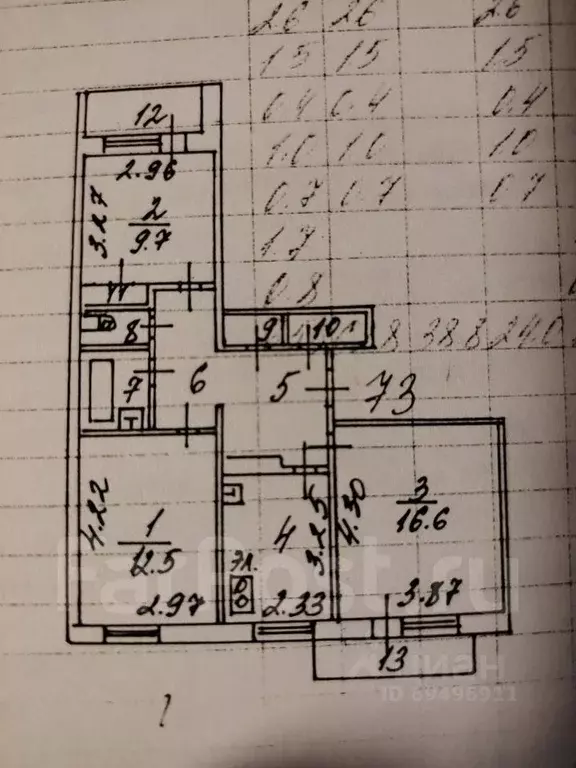 26 26 26
1.5 1.5 1.5
0.4 0.4 0.4
1.0 1.0 1.0
0.7 0.7 0.7
1.7
0.8
8 38 8 24.0
12
2.96
3.27
2
9.7
8
9
10
7
6
5
73
4.22
1
12.5
2.97
4
3.25
эл.
2.33
4.30
3
16.6
3.87
13
FarPost.ru
ЦИАН
ID 69496911